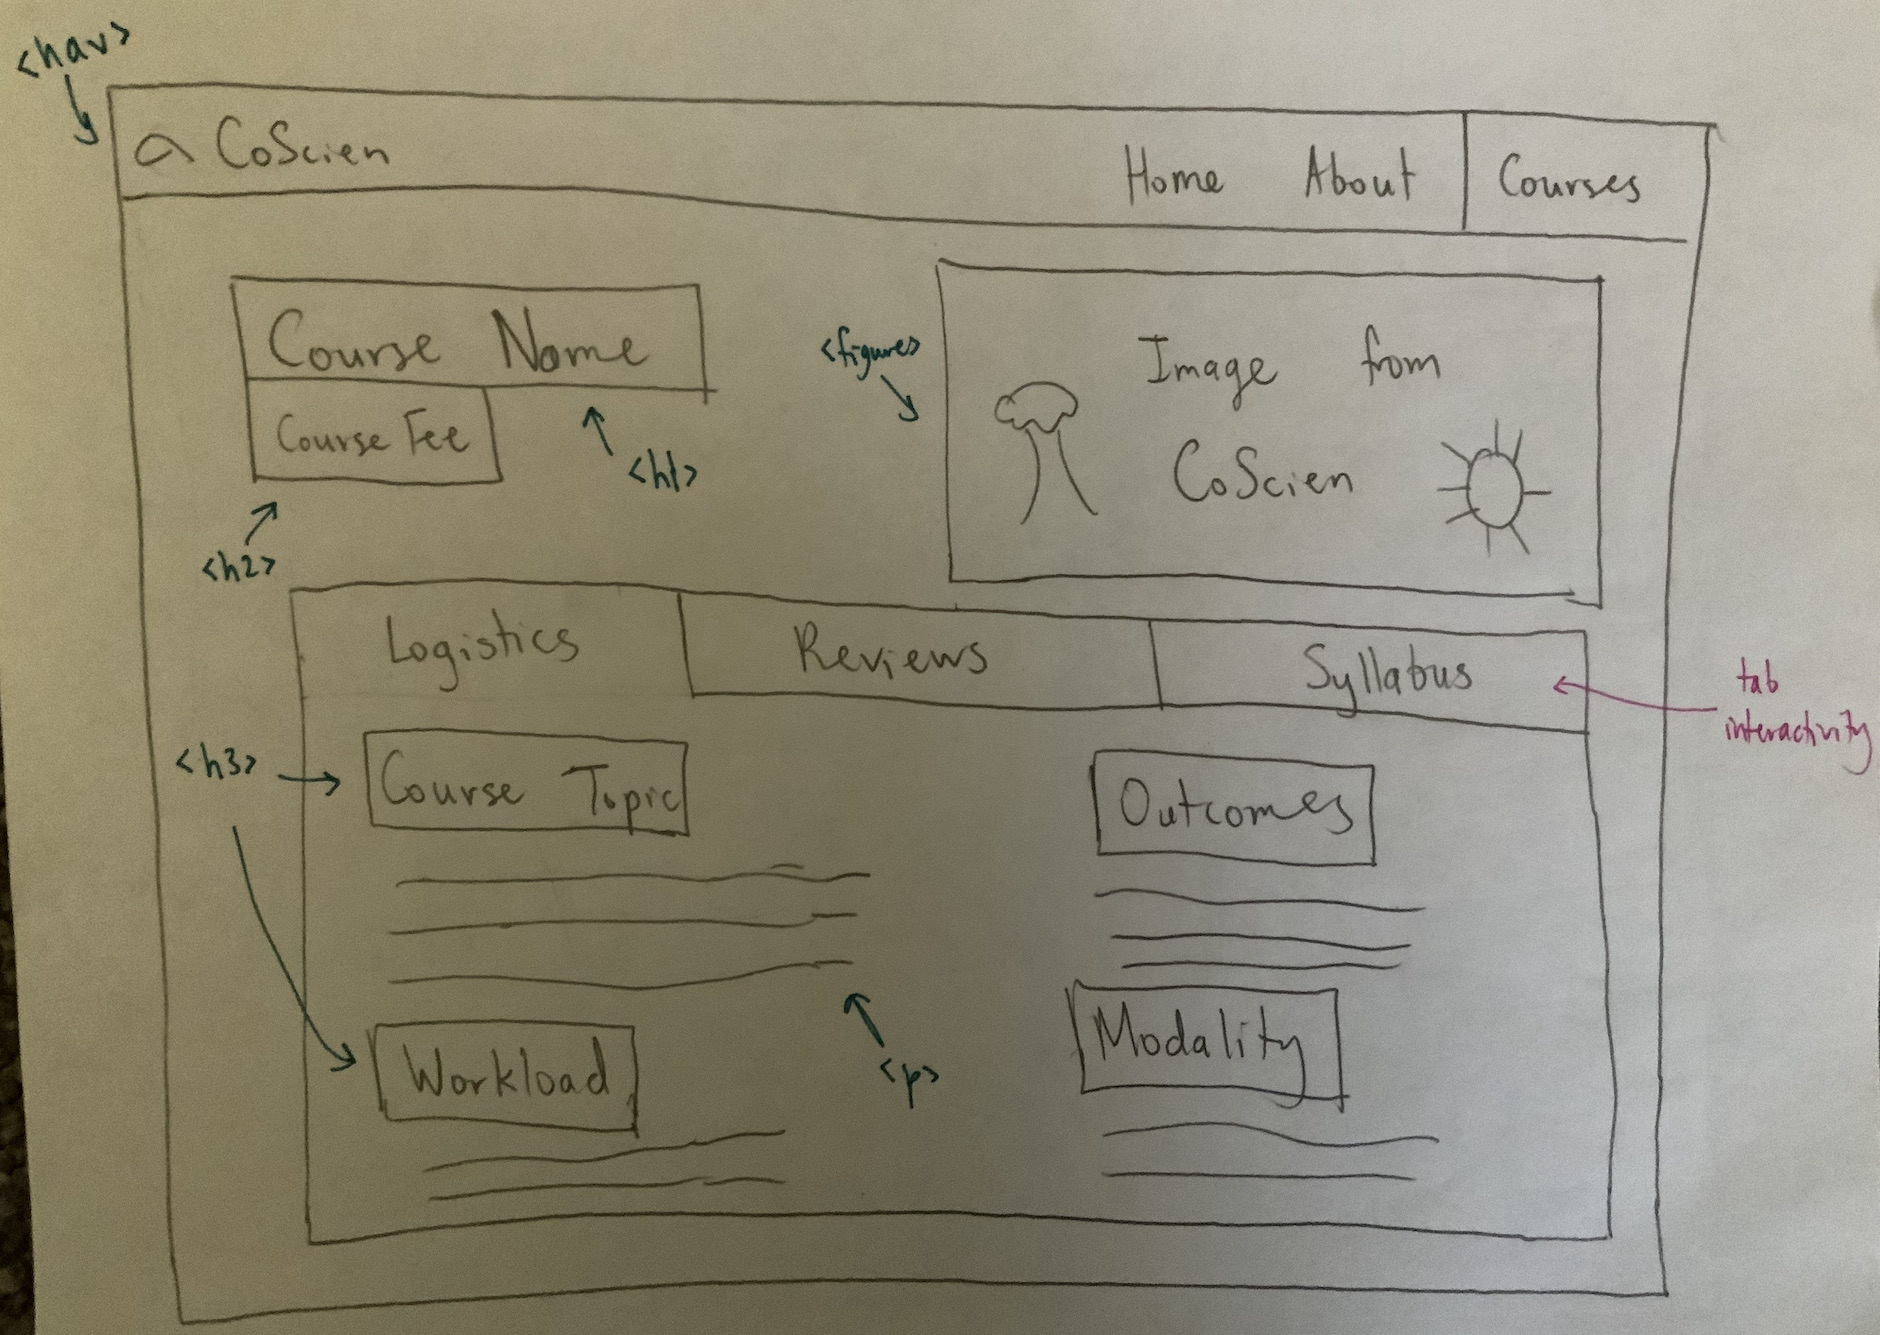 <nav>
CoScien
Home About Courses
Course Name
Course Fee
<h1>
<h2>
<figure>
Image from
CoScien
Logistics Reviews Syllabus
tab
interactivity
<h3>
Course Topic
Outcomes
<p>
Workload
Modality